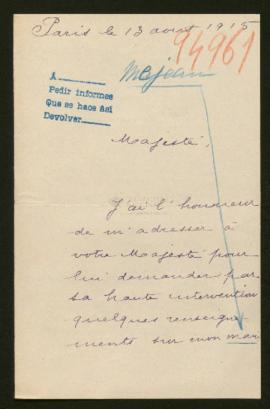 Paris le 13 aout 1915
94961
Mejean
A
Pedir informes
Que se hace Asi
Devolver
Majesté,
J'ai l'honneur
de m'adresser à
votre Majesté pour
lui demander par
sa haute intervention
quelques renseigne-
ments sur mon mar